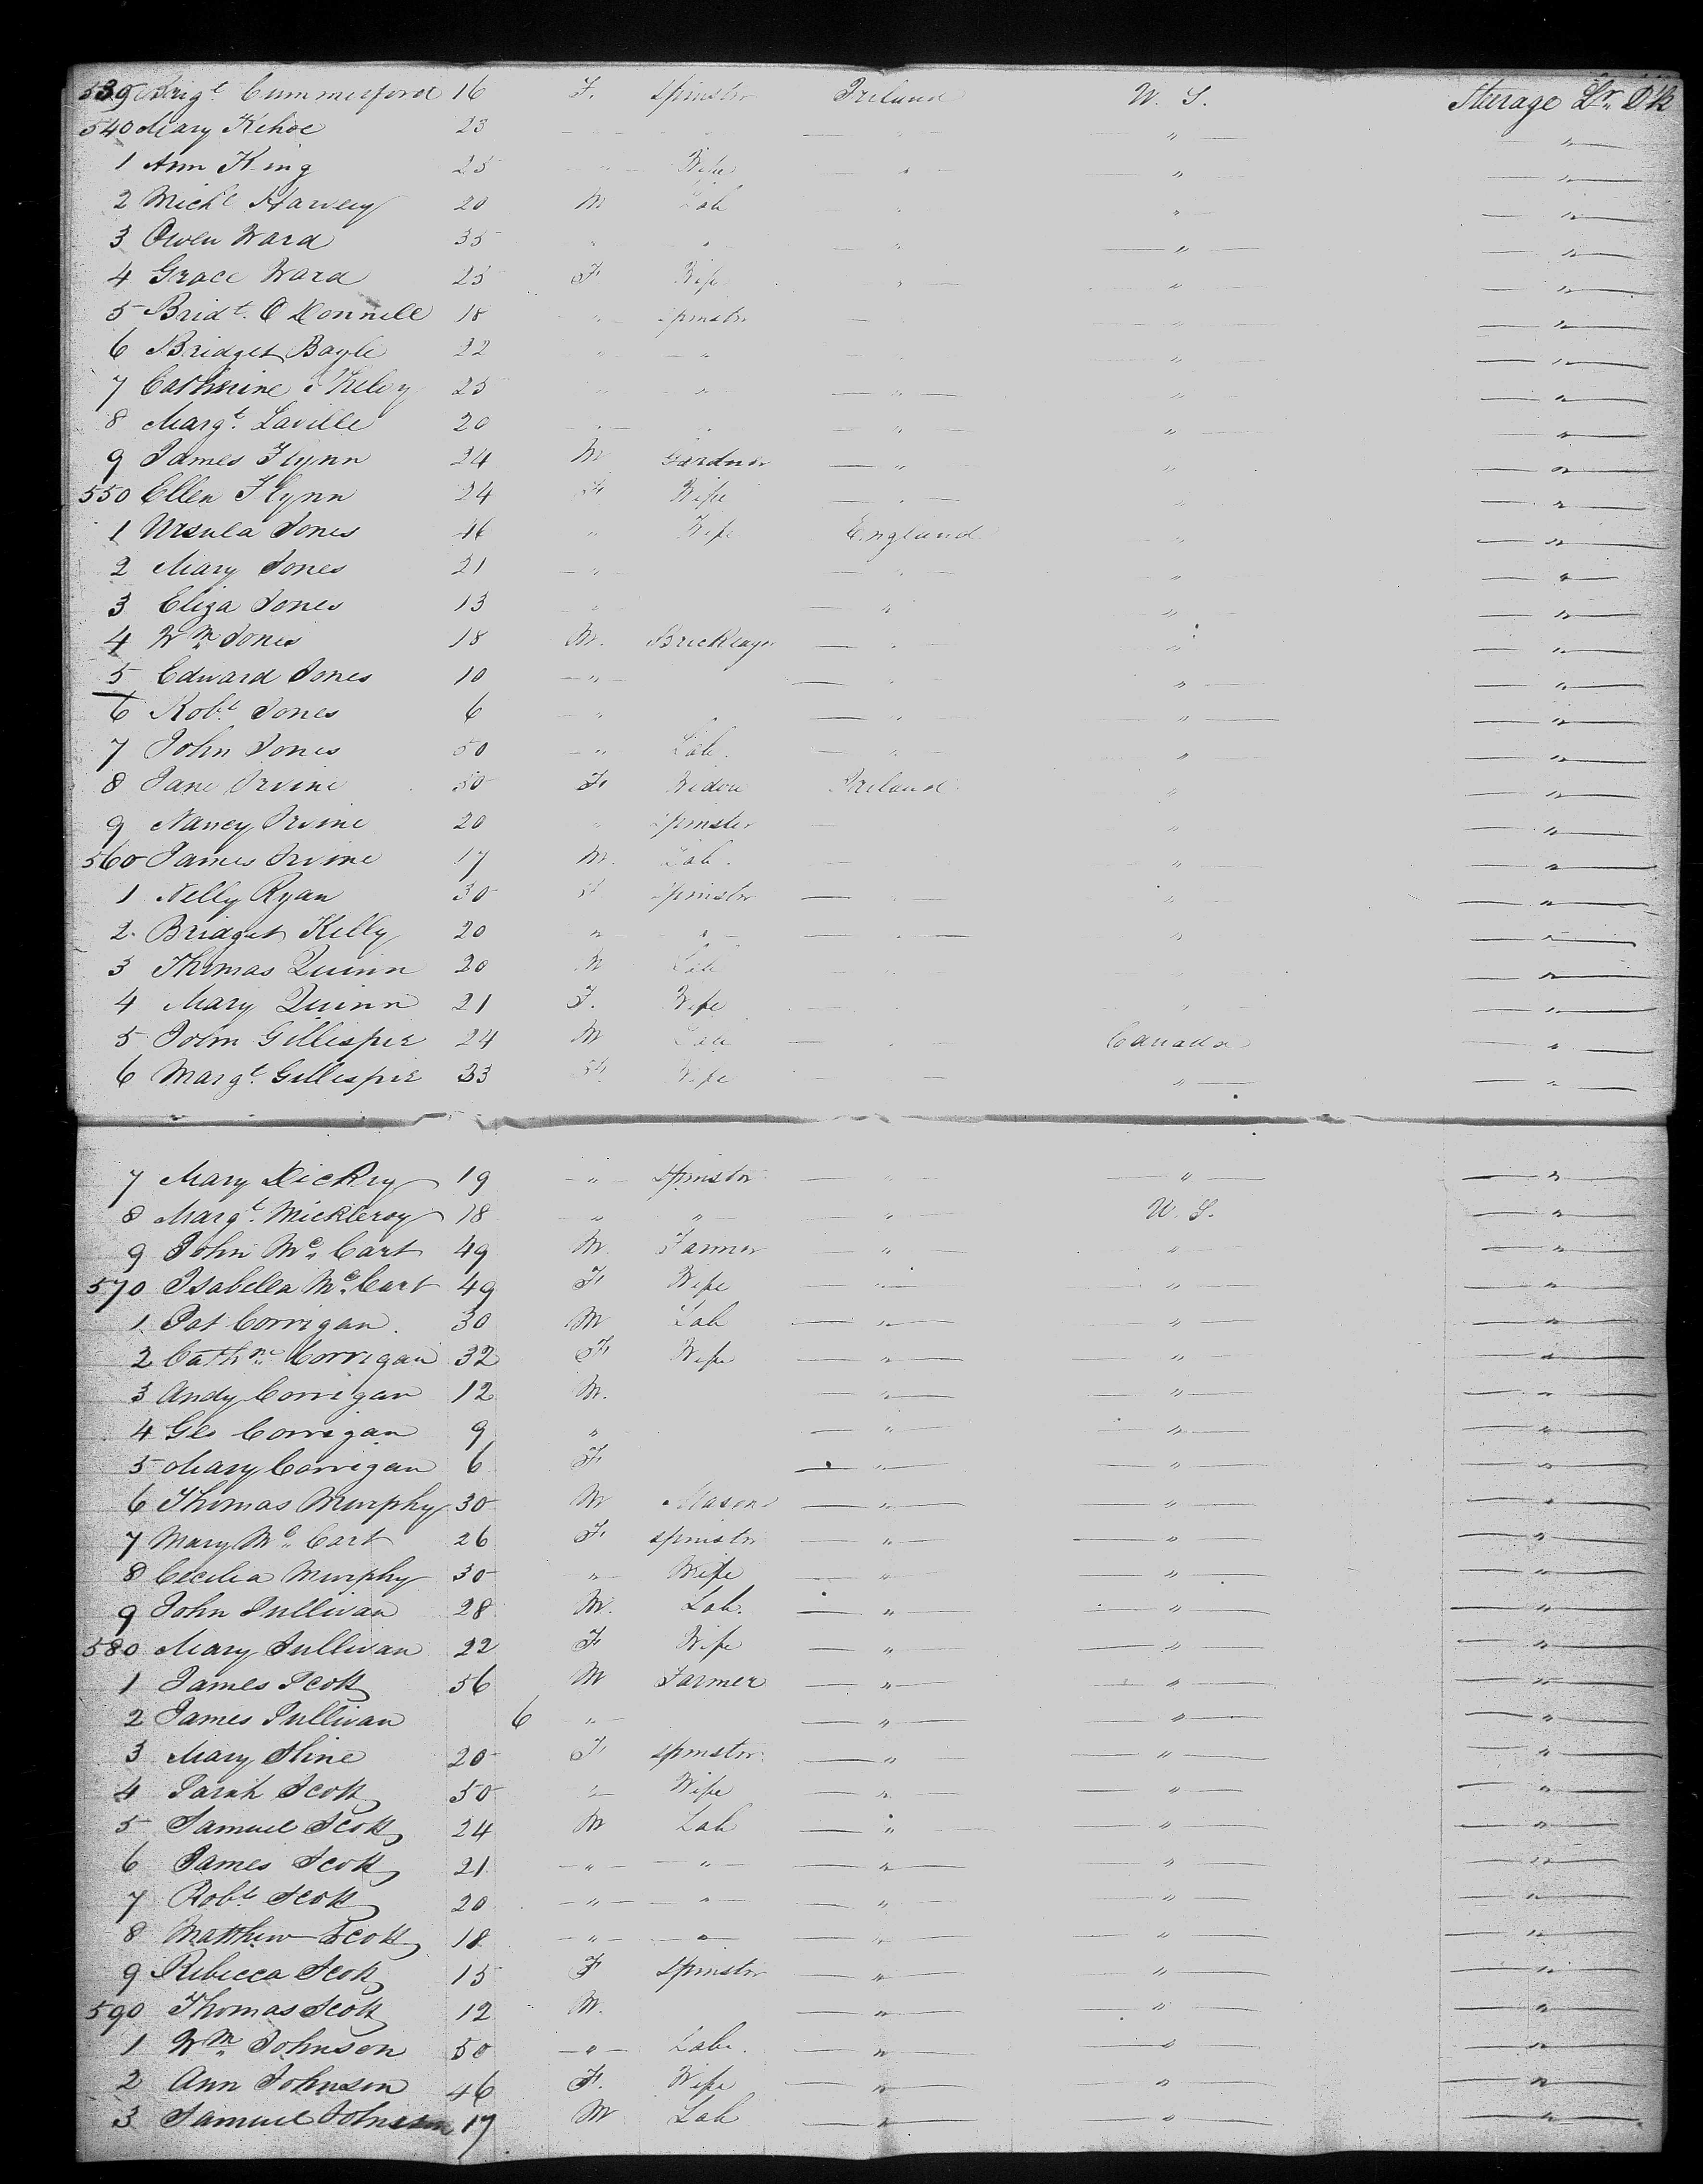 539 Brigt. Cummerford 16 F. Spinstr Ireland U. S. Steerage Lr. D'k
540 Mary Kehoe 23 " " " " "
1 Ann King 25 " Wife " " "
2 Michl Harvey 20 M Lab " " "
3 Owen Ward 35 " " " " "
4 Grace Ward 25 F Wife " " "
5 Bridt. O Donnell 18 " Spinstr " " "
6 Bridget Bayle 22 " " " " "
7 Catherine 25 " " " " "
8 Margt. Laville 20 " " " " "
9 James Flynn 24 M Gardner " " "
550 Ellen Flynn 24 F Wife " " "
1 Ursula Jones 46 " Wife England " "
2 Mary Jones 21 " " " "
3 Eliza Jones 13 " " " "
4 Wm Jones 18 M. Bricklayr " " "
5 Edward Jones 10 " " " "
6 Robt. Jones 6 " " " "
7 John Jones 50 " Lab. " " "
8 Jane Irvine 50 F Widow Ireland " "
9 Nancy Irvine 20 " Spinster " "
560 James Irvine 17 M. Lab. " "
1 Nelly Ryan 30 F Spinstr " " "
2 Bridget Kelly 20 " " " " "
3 Thomas Quinn 20 M Lab " "
4 Mary Quinn 21 F. Wife " "
5 John Gillespie 24 M Lab " Canada "
6 Margt. Gillespie 33 F. Wife " "
7 Mary Dickey 19 " Spinstr " " "
8 Margt. Mickleroy 18 " " " U. S. "
9 John Mc. Cart 49 M. Farmer " " "
570 Isabella Mc. Cart 49 F Wife " " "
1 Pat Corrigan. 30 M Lab " " "
2 Cathne. Corrigan 32 F Wife " " "
3 Andy Corrigan 12 M. " " "
4 Geo Corrigan 9 " " " "
5 Mary Corrigan 6 F " " "
6 Thomas Murphy 30 M Mason " " "
7 Mary Mc. Cart 26 F Spinstr " " "
8 Cecilia Murphy 30 " Wife " " "
9 John Sullivan 28 M. Lab. " " "
580 Mary Sullivan 22 F Wife " " "
1 James Scott 56 M Farmer " " "
2 James Sullivan 6 " " " "
3 Mary Sline 20 F Spinstr " " "
4 Sarah Scott 50 " Wife " " "
5 Samuel Scott 24 M Lab " " "
6 James Scott 21 " " " " "
7 Robt. Scott 20 " " " " "
8 Matthew Scott 18 " " " " "
9 Rebecca Scott 15 F Spinstr " " "
590 Thomas Scott 12 M. " " "
1 Wm Johnson 50 " Labr. " " "
2 Ann Johnson 46 F. Wife " " "
3 Samuel Johnson 17 M Lab " " "